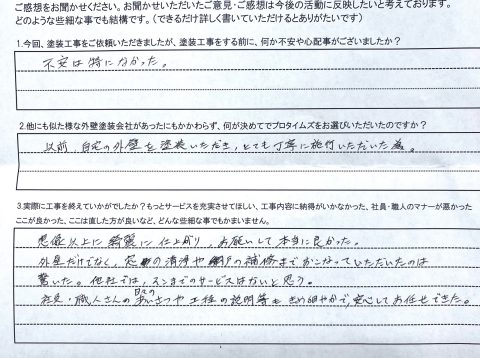 ご感想をお聞かせください。お聞かせいただいたご意見・ご感想は今後の活動に反映したいと考えております。
どのような些細な事でも結構です。（できるだけ詳しく書いていただけるとありがたいです）
1.今回、塗装工事をご依頼いただきましたが、塗装工事をする前に、何か不安や心配事がございましたか？
不安は特になかった。
2.他にも似た様な外壁塗装会社があったにもかかわらず、何が決めてでプロタイムズをお選びいただいたのですか？
以前、自宅の外壁を塗装いただき、とても丁寧に施行いただいた為。
3.実際に工事を終えていかがでしたか？もっとサービスを充実させてほしい、工事内容に納得がいかなかった、社員・職人のマナーが悪かった
ここが良かった、ここは直した方が良いなど、どんな些細な事でもかまいません。
想像以上に綺麗に仕上がり、お願いして本当に良かった。
外壁だけでなく、窓の清浄や網戸の補修までおこなっていただいたのは
驚いた。他社では、ココまでのサービスはないと思う。
社員・職人さんの日々のあいさつや工程の説明等もきめ細やかで、安心してお任せできた。